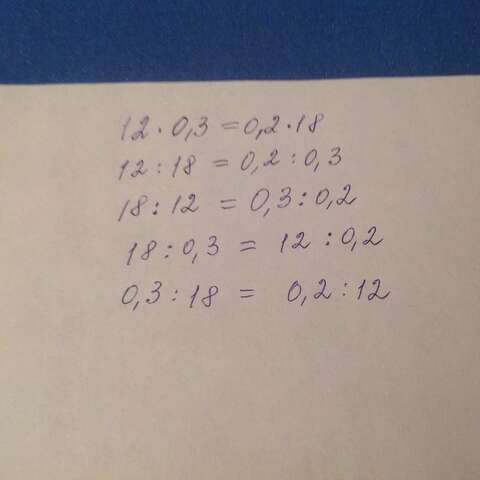 12 · 0,3 = 0,2 · 18
12 : 18 = 0,2 : 0,3
18 : 12 = 0,3 : 0,2
18 : 0,3 = 12 : 0,2
0,3 : 18 = 0,2 : 12